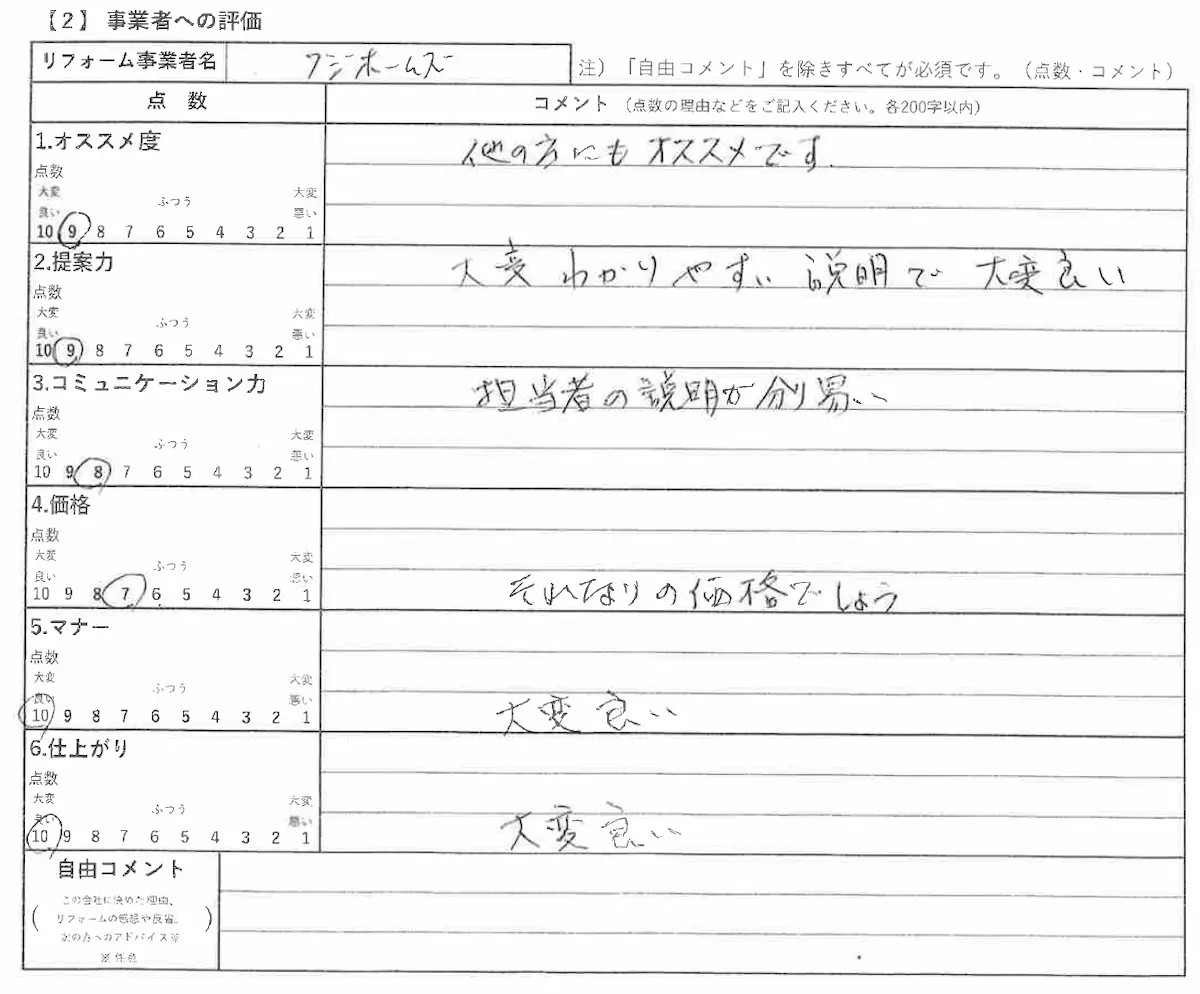 【2】 事業者への評価
リフォーム事業者名 フジホームズ
注）「自由コメント」を除きすべてが必須です。（点数・コメント）
点 数 コメント （点数の理由などをご記入ください。各200字以内）
1.オススメ度
他の方にもオススメです.
点数
大変 ふつう 大変
良い 悪い
10 9 8 7 6 5 4 3 2 1
2.提案力
大変わかりやすい説明で大変良い
点数
大変 ふつう 大変
良い 悪い
10 9 8 7 6 5 4 3 2 1
3.コミュニケーション力
担当者の説明が分り易い
点数
大変 ふつう 大変
良い 悪い
10 9 8 7 6 5 4 3 2 1
4.価格
点数
大変 ふつう 大変
良い 悪い
10 9 8 7 6 5 4 3 2 1
それなりの価格でしょう
5.マナー
点数
大変 ふつう 大変
良い 悪い
10 9 8 7 6 5 4 3 2 1
大変良い
6.仕上がり
点数
大変 ふつう 大変
良い 悪い
10 9 8 7 6 5 4 3 2 1
大変良い
自由コメント
（この会社に決めた理由、
リフォームの感想や反省、
次の方へのアドバイス等）
※任意